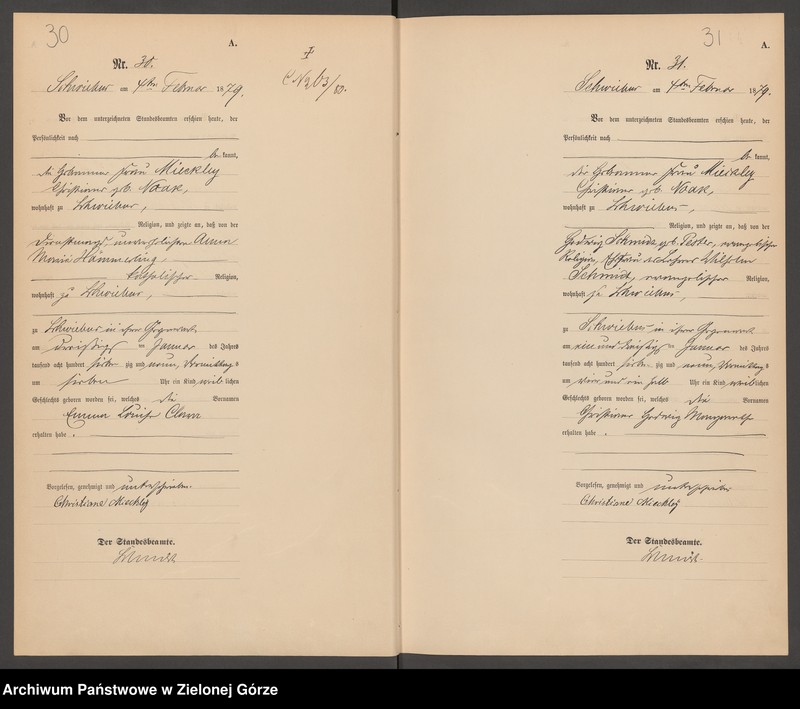 30
A.
Nr. 30.
Schwiebus am 4ten Februar 1879.
Vor dem unterzeichneten Standesbeamten erschien heute, der
Persönlichkeit nach
be kannt,
die Hebamme Frau Mieckley
Christiane geb. Noak,
wohnhaft zu Schwiebus,
Religion, und zeigte an, daß von der
unverehelichten Anna
Marie Hämmerling,
katholischer Religion,
wohnhaft zu Schwiebus,
zu Schwiebus in ihrer Gegenwart
am dreißigsten Januar des Jahres
tausend acht hundert sieben zig und neun, Vormittags
um sieben Uhr ein Kind weib lichen
Geschlechts geboren worden sei, welches die Vornamen
Emma Louise Clara
erhalten habe.
Vorgelesen, genehmigt und unterschrieben.
Christiane Mieckley
Der Standesbeamte.
Schmidt
31
A.
Nr. 31.
Schwiebus am 4ten Februar 1879.
Vor dem unterzeichneten Standesbeamten erschien heute, der
Persönlichkeit nach
be kannt,
die Hebamme Frau Mieckley
Christiane geb. Noak,
wohnhaft zu Schwiebus,
Religion, und zeigte an, daß von der
Hedwig Schmidt, geb. Pester, evangelischer
Religion, Ehefrau des Lehrers Wilhelm
Schmidt, evangelischer Religion,
wohnhaft zu Schwiebus,
zu Schwiebus in ihrer Gegenwart
am ein und dreißigsten Januar des Jahres
tausend acht hundert sieben zig und neun, Vormittags
um vier und ein halb Uhr ein Kind weib lichen
Geschlechts geboren worden sei, welches die Vornamen
Christiane Hedwig Margarethe
erhalten habe.
Vorgelesen, genehmigt und unterschrieben
Christiane Mieckley
Der Standesbeamte.
Schmidt
Archiwum Państwowe w Zielonej Górze